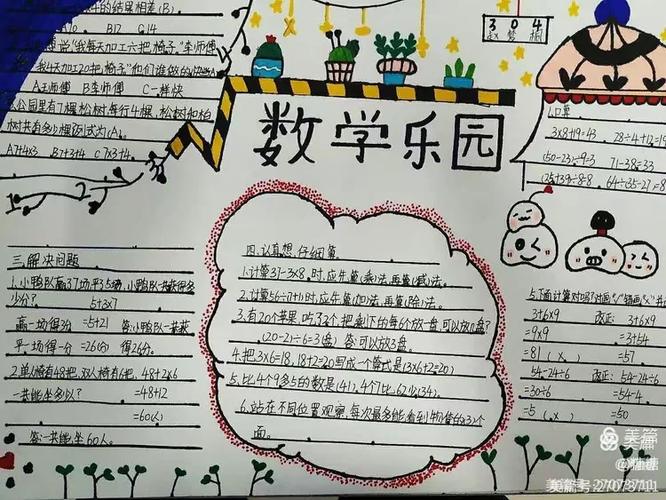 的结果相差(B)。
B17 C14
说"我每天加工六把椅子"李师傅
我4天加工20把椅子"他们谁做的
A王师傅 B李师傅 C一样快
公园里有7棵松树每行4棵,松树和柏
树共有多少棵列式为(A)。
A7+4×3. B7+3+4 C7×3+4.
数学乐园
304
赵梦桐
1.口算
3×8+19=43 28÷4+12=19
(50-23)÷9=3 71-38=33
(25+39)÷8=8 64÷(35-27)=8
三.解决问题
1.小鸭队赢37场平5场,小鸭队一共获得多
少分?
5+3×7
赢一场得3分 =5+21 答:小鸭队一共获
平一场得一分 =26(分) 得26分。
2.单人椅有48把,双人椅有6把, 48+2×6
一共能坐多少? =48+12
=60(人)
答:一共能坐60人。
四.认真想,仔细算
1.计算37-3×8,时,应先算(乘)法,再算(减)法。
2.计算56÷(7+1)时,应先算(加)法,再算(除)法。
3.有20个苹果,吃了2个,把剩下的每6个放一盘,可以放几盘?
(20-2)÷6=3(盘) 答:可以放3盘。
4.把3×6=18,18+2=20写成一个算式是(3×6+2=20)
5.比4个9多5的数是(41),4个7比62少(34)。
6.站在不同位置观察,每次最多能看到物体的3个
面。
5.下面计算对吗?对画"√"错画"×"
3+6×9 改正: 3+6×9
=9×9 =3+54
=81 (×) =57
54-24÷6 改正: 54-24÷6
=30÷6 =54-4
=5 (×) =50
美篇
美篇号:27073711